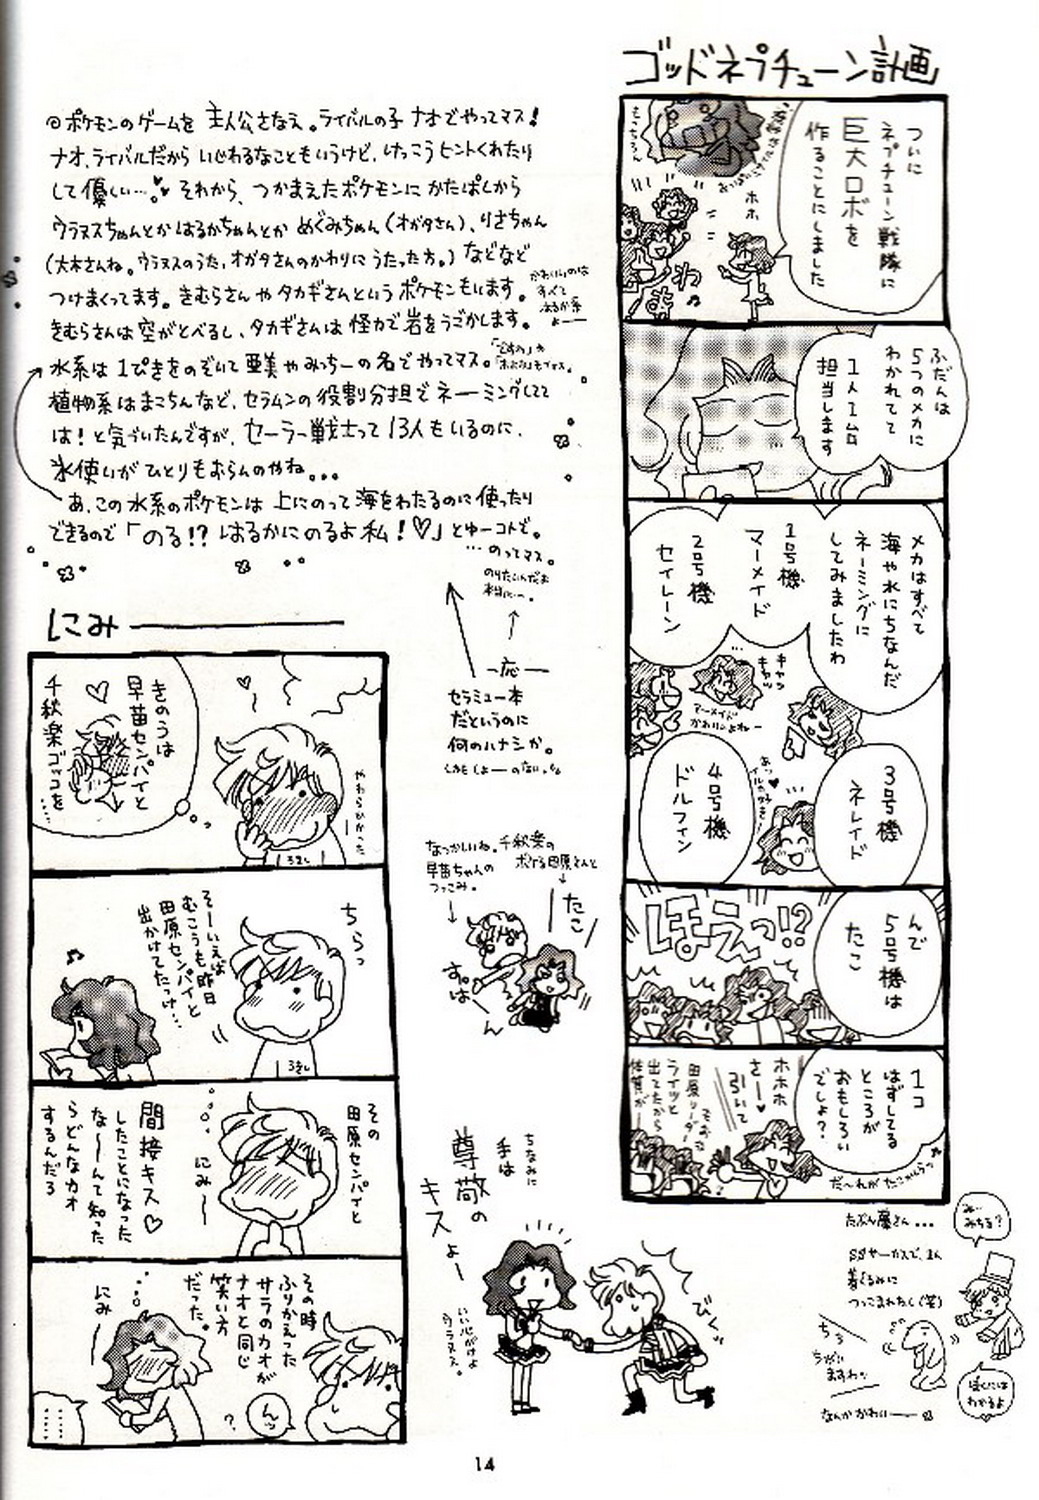 ゴッドネプチューン計画
ついに
ネプチューン戦隊に
巨大ロボを
作ることにしました
ホホ
わーい
もちろん
ふだんは
5つのメカに
わかれてて
1人1ムロ
担当します
メカはすべて
海や水にちなんだ
ネーミングに
してみましたわ
1号機
マーメイド
2号機
セイレーン
キャッ
キャッ
マーメイド
かわいいよねー
3号機
ネレイド
4号機
ドルフィン
んで
5号機は
たこ
ほえっ!?
1コ
はずしてる
ところが
おもしろい
でしょ?
ホホホ
さー♥
引いて
田原リーダー
ライツと
出てたから
だ〜れが たこかしらっ
◎ポケモンのゲームを 主人公さなえ。ライバルの子 ナオでやってマス!
ナオ、ライバルだから いじわるなこともいうけど、けっこう ヒントくれたり
して優しい…。それから、つかまえたポケモンに かたぱしから
ウラヌスちゃんとか はるかちゃんとか めぐみちゃん(オガタさん)、りさちゃん
(大木さんね。ウラヌスのうた、オガタさんのかわりに うたった方。)などなど
つけまくってます。きむらさん や タカギさんという ポケモンもいます。
かわいいのは
すべて
はるか系
よ――
きむらさんは 空がとべるし、タカギさんは 怪力で岩をうごかします。
水系は 1ぴきをのぞいて 亜美 や みっちーの 名で やってマス。
植物系は まこちん など、セラムンの 役割分担で ネーミングしてて
は!と気づいたんですが、セーラー戦士って 13人もいるのに、
氷使いが ひとりもおらんのやね。。。
あ、この 水系のポケモンは 上にのって 海をわたるのに 使ったり
できるので「のる!? はるかにのるよ 私!♡」とゆーコトで。
…のってマス。
のりたいんだね
本当に…。
一応
セラミュー本
だというのに
何のハナシか。
にみ――
きのうは
早苗センパイと
千秋楽ゴッコを
…
やわらかかった
ちらっ
そーいえば
むこうも昨日
田原センパイと
出かけてたっけ…
その
田原センパイと
間接キス♡
したことになった
な〜んて知った
らどんなカオ
するんだろ
にみ〜
その時
ふりかえった
サラのカオが
ナオと同じ
笑い方
だった。
にみ――
んっ
?
なつかしいね。千秋楽の
ボケる田原さんと
早苗ちゃんの
つっこみ。
たこ
すぱーん
ちなみに
手は
尊敬の
キスよー
いい心がけよ
ウラヌス。
びくッ
たぶん藤さん…
SSサーカスで、まん
着ぐるみに
つつまれたし(笑)
みー
みちる?
ちっ
ちがい
ますわっ
ぼくには
わかるよ
なんかかわい――
14